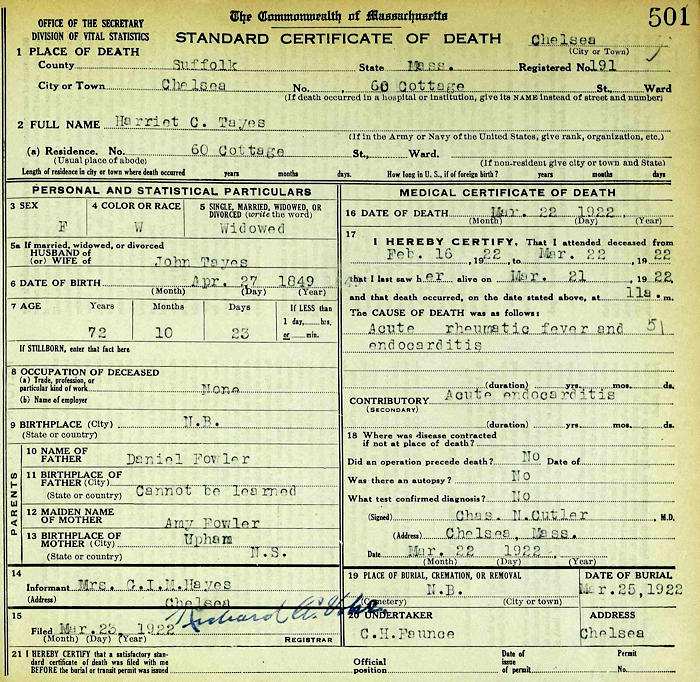 The Commonwealth of Massachusetts
501
OFFICE OF THE SECRETARY
DIVISION OF VITAL STATISTICS
STANDARD CERTIFICATE OF DEATH
Chelsea
(City or Town)
1 PLACE OF DEATH
County Suffolk State Mass. Registered No. 191
City or Town Chelsea No. 60 Cottage St., Ward
(If death occurred in a hospital or institution, give its NAME instead of street and number)
2 FULL NAME Harriet C. Tayes
(If in the Army or Navy of the United States, give rank, organization, etc.)
(a) Residence. No. 60 Cottage St., Ward.
(Usual place of abode) (If non-resident give city or town and State)
Length of residence in city or town where death occurred years months days. How long in U. S., if of foreign birth? years months days.
PERSONAL AND STATISTICAL PARTICULARS
3 SEX
F
4 COLOR OR RACE
W
5 SINGLE, MARRIED, WIDOWED, OR
DIVORCED (write the word)
Widowed
5a If married, widowed, or divorced
HUSBAND of
(or) WIFE of John Tayes
6 DATE OF BIRTH Apr. 27 1849
(Month) (Day) (Year)
7 AGE Years Months Days
72 10 23
If LESS than
1 day,....hrs.
or....min.
If STILLBORN, enter that fact here
8 OCCUPATION OF DECEASED
(a) Trade, profession, or
particular kind of work None
(b) Name of employer
9 BIRTHPLACE (City) N.B.
(State or country)
PARENTS
10 NAME OF
FATHER Daniel Fowler
11 BIRTHPLACE OF
FATHER (City)
(State or country) Cannot be learned
12 MAIDEN NAME
OF MOTHER Amy Fowler
13 BIRTHPLACE OF
MOTHER (City) Upham
(State or country) N.S.
14
Informant Mrs. G.I.M.Hayes
(Address) Chelsea
15
Filed Mar.23, 1922
(Month) (Day) (Year) REGISTRAR
MEDICAL CERTIFICATE OF DEATH
16 DATE OF DEATH Mar. 22 1922
(Month) (Day) (Year)
17
I HEREBY CERTIFY, That I attended deceased from
Feb. 16, 1922, to Mar. 22, 1922
that I last saw her alive on Mar. 21, 1922,
and that death occurred, on the date stated above, at 11a.m.
The CAUSE OF DEATH was as follows:
Acute rheumatic fever and 51
endocarditis
(duration) yrs. mos. ds.
CONTRIBUTORY Acute endocarditis
(SECONDARY)
(duration) yrs. mos. ds.
18 Where was disease contracted
if not at place of death?
Did an operation precede death? No Date of
Was there an autopsy? No
What test confirmed diagnosis? No
(Signed) Chas. N.Cutler, M.D.
(Address) Chelsea, Mass.
Date Mar. 22 1922
(Month) (Day) (Year)
19 PLACE OF BURIAL, CREMATION, OR REMOVAL
N.B.
(Cemetery) (City or town)
DATE OF BURIAL
Mar.25,1922
20 UNDERTAKER
C.H.Faunce
ADDRESS
Chelsea
21 I HEREBY CERTIFY that a satisfactory stan-
dard certificate of death was filed with me
BEFORE the burial or transit permit was issued
Official
position
Date of
issue
of permit
Permit
No.